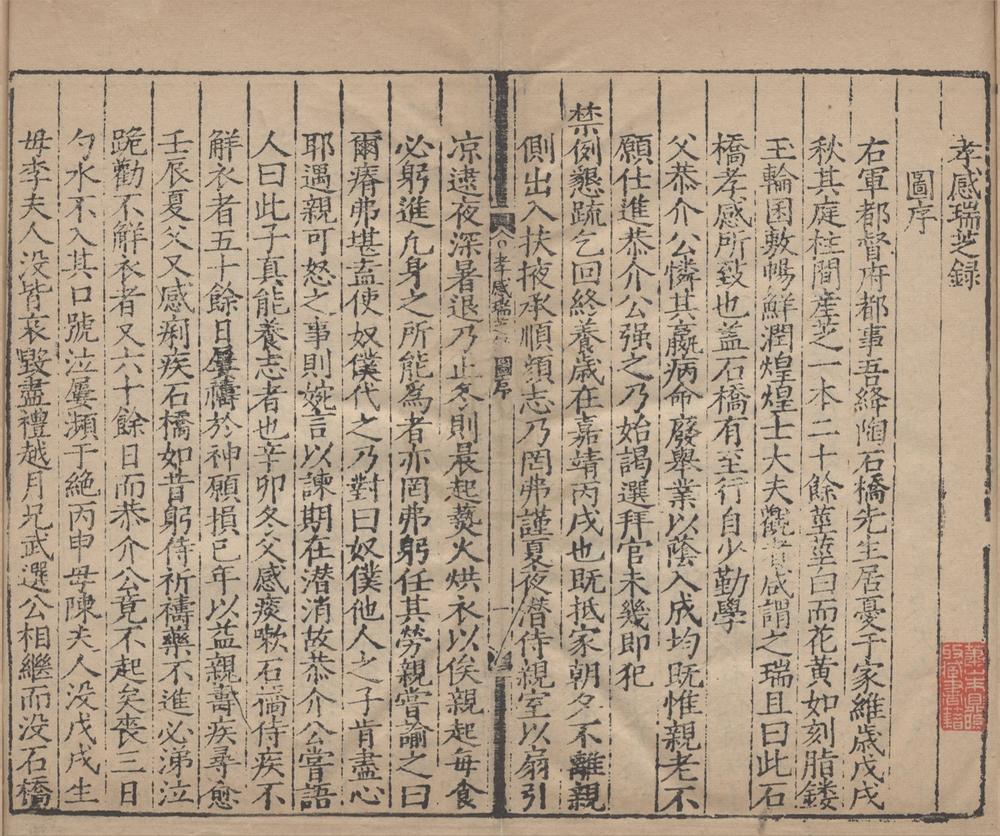 孝感瑞芝録
圖序
右軍都督府都事吾絳陶石橋先生居憂于家維歳戊戌
秋其庭柱間産芝一本二十餘莖莖曰而花黄如刻脂鏤
玉輪囷敷暢鮮潤煌煌士大夫觀者咸謂之瑞且曰此石
橋孝感所致也盖石橋有至行自少勤學
父恭介公憐其羸病命廢舉業以蔭入成均既惟親老不
願仕進恭介公强之乃始謁選拜官未幾即犯
禁例懇疏乞回終養歳在嘉靖丙戌也既抵家朝夕不離親
側出入扶掖承順顔志乃罔弗謹夏夜潜侍親室以扇引
孝感瑞芝 圖序
一
凉逮夜深暑退乃止冬則晨起爇火烘衣以俟親起毎食
必躬進凢身之所能為者亦罔弗躬任其勞親嘗諭之曰
爾瘠弗堪盍使奴僕代之乃對曰奴僕他人之子肯盡心
耶遇親可怒之事則婉言以諫期在潜消故恭介公嘗語
人曰此子真能養志者也辛卯冬父感痰嗽石橋侍疾不
解衣者五十餘日屢禱於神願損己年以益親壽疾尋愈
壬辰夏父又感痢疾石橋如昔躬侍祈禱藥不進必涕泣
跪勸不解衣者又六十餘日而恭介公竟不起矣喪三日
勺水不入其口號泣屢瀕于絶丙申母陳夫人没戊戌生
母李夫人没皆哀毁盡禮越月兄武選公相繼而没石橋